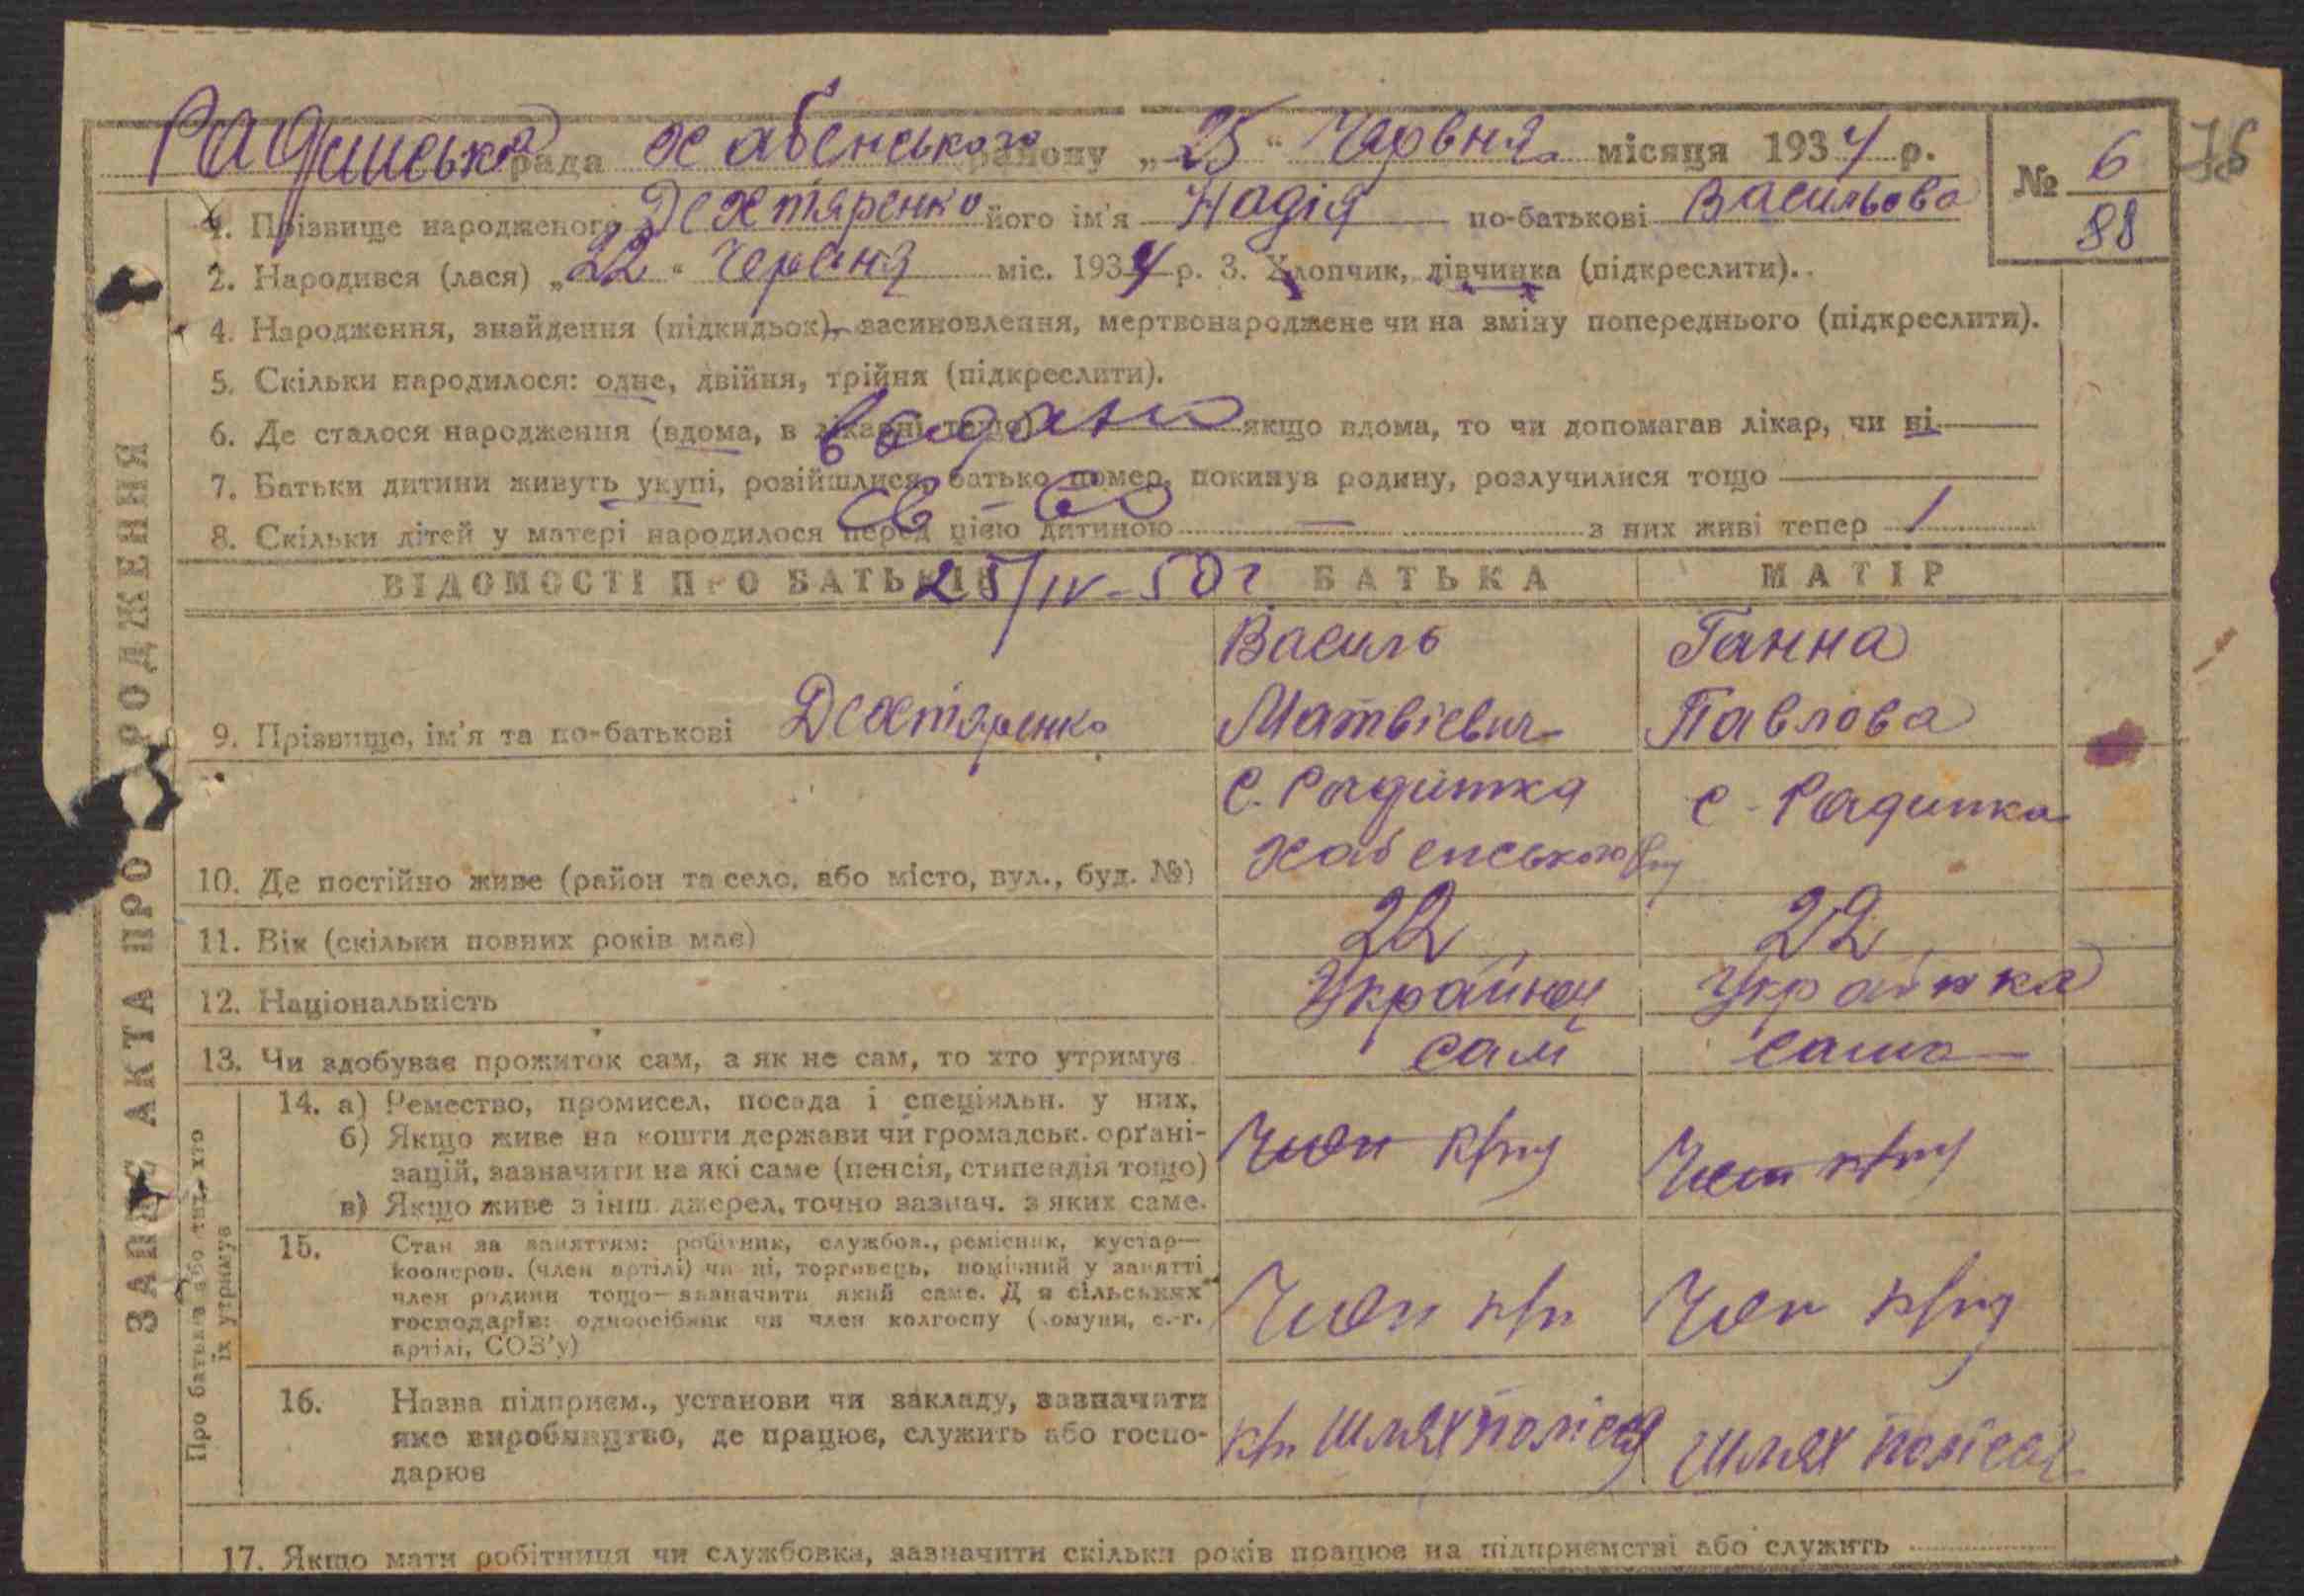 Радинська рада Хабенського району „25“ Червня місяця 1934 р.
№ 6
88
76
1. Прізвище народженого Дехтяренко його ім'я Надія по-батькові Васильова
2. Народився (лася) „22“ Червня міс. 1934 р. 3. Хлопчик, дівчинка (підкреслити).
4. Народження, знайдення (підкидьок), засиновлення, мертвонароджене чи на зміну попереднього (підкреслити).
5. Скільки народилося: одне, двійня, трійня (підкреслити).
6. Де сталося народження (вдома, в лікарні тощо) якщо вдома, то чи допомагав лікар, чи ні
7. Батьки дитини живуть укупі, розійшлися, батько помер, покинув родину, розлучилися тощо
8. Скільки дітей у матері народилося перед цією дитиною — з них живі тепер 1
видано
св-во
25/IV-50 г
ВІДОМОСТІ ПРО БАТЬКІВ БАТЬКА МАТІР
9. Прізвище, ім'я та по-батькові Дехтяренко
Василь Матвієвич
Ганна Павлова
10. Де постійно живе (район та село, або місто, вул., буд. №)
с. Радинка
Хабенського
с. Радинка
11. Вік (скільки повних років має) 22 22
12. Національність Українец Українка
13. Чи здобуває прожиток сам, а як не сам, то хто утримує сам сама
14. а) Ремество, промисел, посада і спеціяльн. у них,
б) Якщо живе на кошти держави чи громадськ. орґані-
зацій, зазначити на які саме (пенсія, стипендія тощо)
в) Якщо живе з інш. джерел, точно зазнач. з яких саме.
Член к/г
Член к/г
15. Стан за заняттям: робітник, службов., ремісник, кустар—
кооперов. (член артілі) чи ні, торговець, помічний у занятті
член родини тощо—зазначити який саме. Для сільських
господарів: одноосібник чи член колгоспу (комуни, с.-г.
артілі, СОЗ'у)
Член к/г
Член к/г
16. Назва підприєм., установи чи закладу, зазначити
яке виробництво, де працює, служить або госпо-
дарює
к/г Шлях полісся
Шлях полісся
17. Якщо мати робітниця чи службовка, зазначити скільки років працює на підприємстві або служить
ЗАПИС АКТА ПРО РОДЖЕННЯ
Про батьків або тих, хто
їх утримує